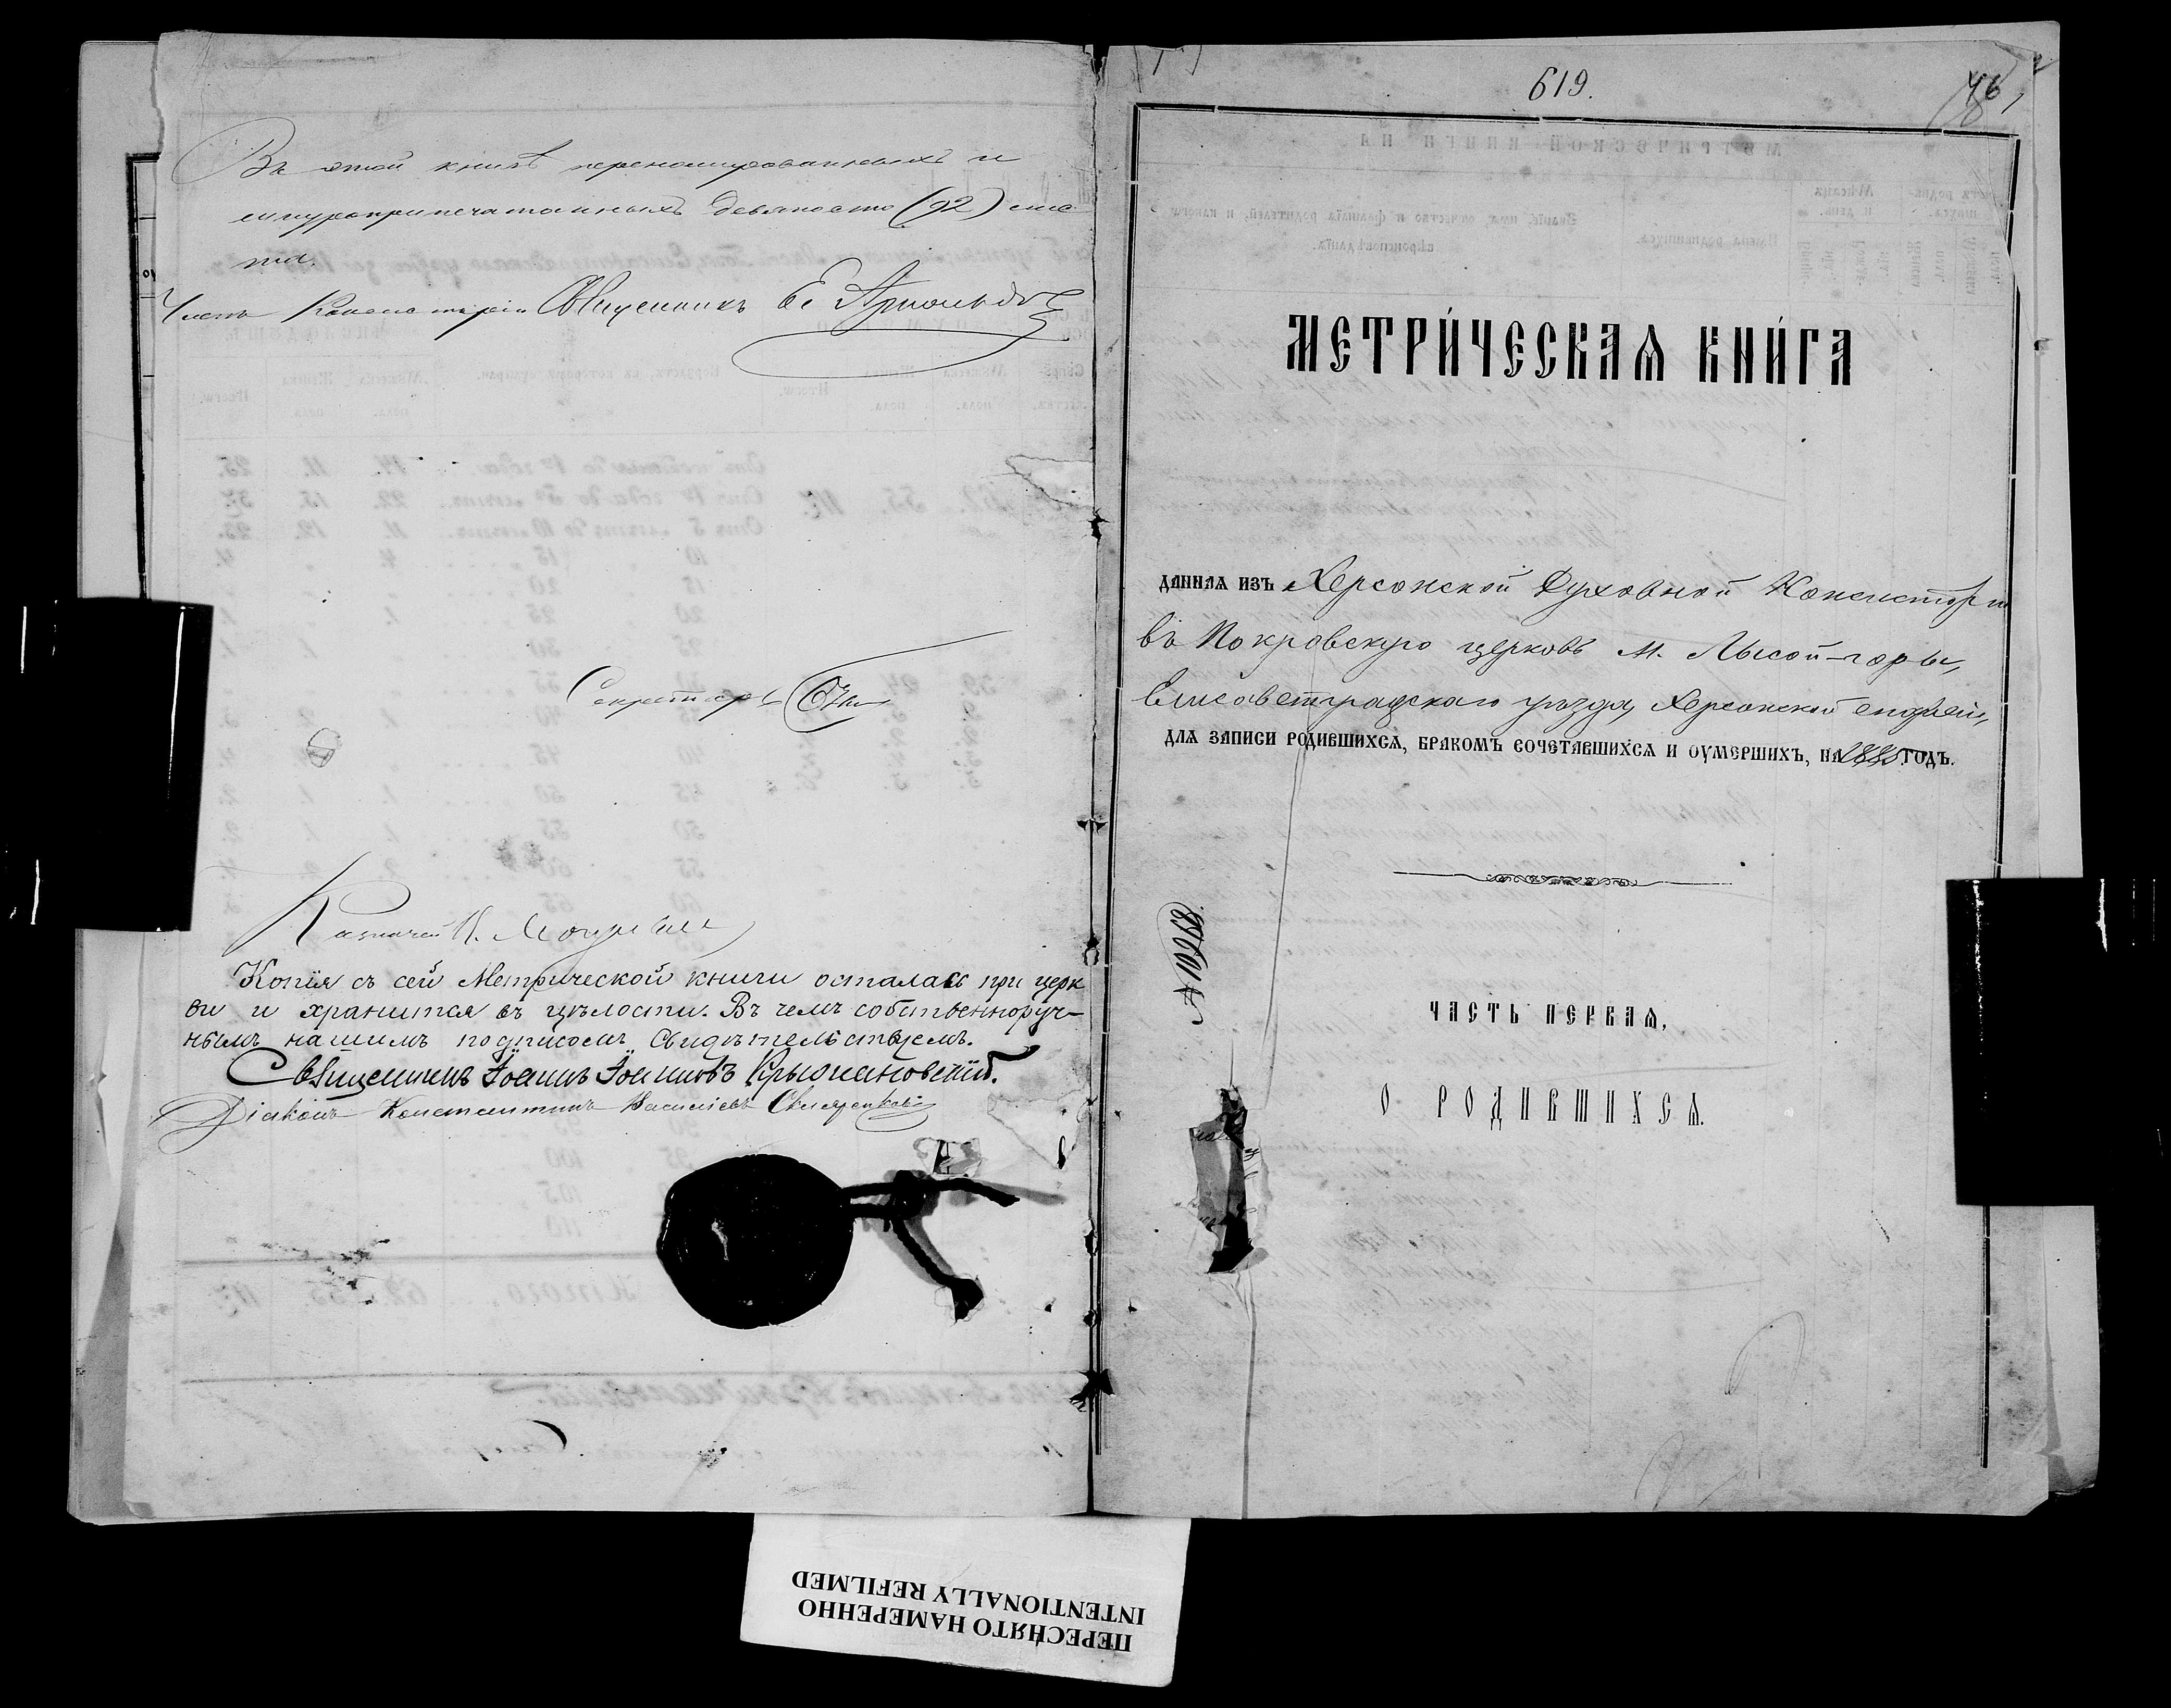 Въ этой книгѣ перенумерованныхъ и
шнуроприпечатанныхъ девяносто (92) лис
та.
Членъ Консисторіи Священникъ
Секретарь
Казначей
Копія съ сей Метрической книги осталась при церк
ви и хранится въ цѣлости. Въ чемъ собственноруч-
нымъ нашимъ подписомъ свидѣтельствуемъ.
Священникъ Іоаннъ Іоанновъ Крыжановскій.
Діаконъ Константинъ Василіевъ
619.
46
МЕТРИ́ЧЕСКАѦ КНИ́ГА
ДАННАѦ ИЗЪ Херсонской Духовной Консисторіи
въ Покровскую церковь м. Лысой-горы,
Елисаветградскаго уѣзда, Херсонской епархіи,
ДЛѦ ЗАПИСИ РОДИВШИХСѦ, БРАКОМЪ СОЧЕТАВШИХСѦ И ОУМЕРШИХЪ, НА 1880 ГОДЪ.
ЧАСТЬ ПЕРВАѦ,
О РОДИВШИХСѦ.
ПЕРЕСНЯТО НАМЕРЕННО
INTENTIONALLY REFILMED